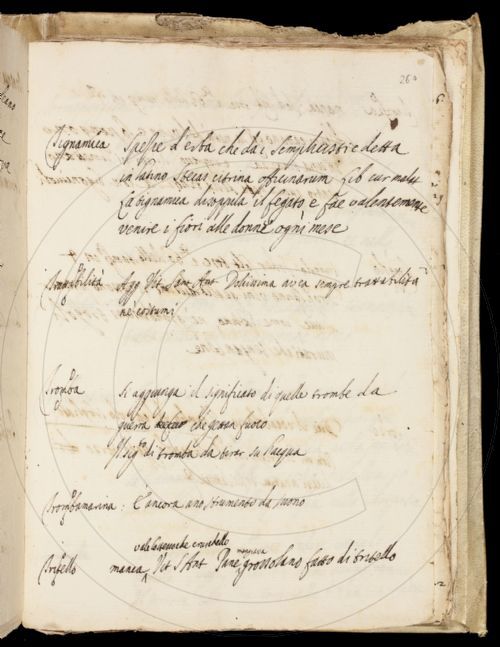 26
Tignamica Spezie d'erba che da i semplicisti è detta
in latino Stecas citrina officinarum. Lib. cur. malatt.
La tignamica disoppila il fegato e fae valentemente
venire i fiori alle donne ogni mese
Trattabilità Agg. Vit. Sant. Ant. Dolcissima avea sempre trattabilità
ne' costumi
Tromba si aggiunga il significato di quelle trombe da
guerra che getta fuoco
di tromba da tirar su l'acqua
Tromba marina: è ancora uno strumento da suono
mangiava
Tritello manca Vit. S. Ant. Pane grossolano fatto di tritello